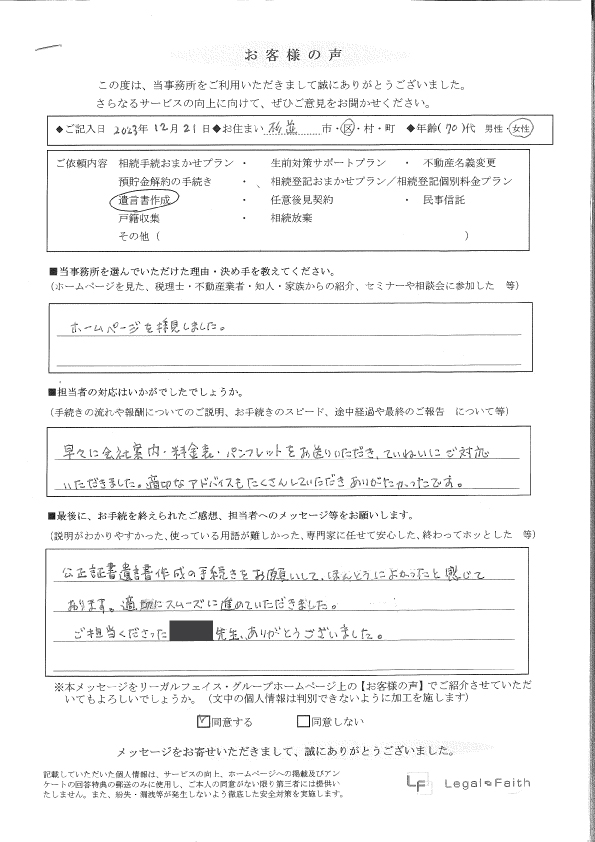 お客様の声
この度は、当事務所をご利用いただきまして誠にありがとうございました。
さらなるサービスの向上に向けて、ぜひご意見をお聞かせください。
◆ご記入日 2023年 12月 21日 ◆お住まい 杉並 市・区・村・町 ◆年齢(70)代 男性・女性
ご依頼内容 相続手続おまかせプラン ・ 生前対策サポートプラン ・ 不動産名義変更
預貯金解約の手続き ・ 、相続登記おまかせプラン/相続登記個別料金プラン
遺言書作成 ・ 任意後見契約 ・ 民事信託
戸籍収集 ・ 相続放棄
その他( )
■当事務所を選んでいただけた理由・決め手を教えてください。
(ホームページを見た、税理士・不動産業者・知人・家族からの紹介、セミナーや相談会に参加した 等)
ホームページを拝見しました。
■担当者の対応はいかがでしたでしょうか。
(手続きの流れや報酬についてのご説明、お手続きのスピード、途中経過や最終のご報告 について等)
早々に会社案内・料金表・パンフレットをお送りいただき、ていねいにご対応
いただきました。適切なアドバイスもたくさんしていただきありがたかったです。
■最後に、お手続を終えられたご感想、担当者へのメッセージ等をお願いします。
(説明がわかりやすかった、使っている用語が難しかった、専門家に任せて安心した、終わってホッとした 等)
公正証書遺言書作成の手続きをお願いして、ほんとうによかったと感じて
おります。適確にスムーズに進めていただきました。
ご担当くださった 先生、ありがとうございました。
※本メッセージをリーガルフェイス・グループホームページ上の【お客様の声】でご紹介させていただ
いてもよろしいでしょうか。(文中の個人情報は判別できないように加工を施します)
☑同意する □同意しない
メッセージをお寄せいただきまして、誠にありがとうございました。
記載していただいた個人情報は、サービスの向上、ホームページへの掲載及びアン
ケートの回答特典の郵送のみに使用し、ご本人の同意がない限り第三者には提供い
たしません。また、紛失・漏洩等が発生しないよう徹底した安全対策を実施します。
LF Legal Faith